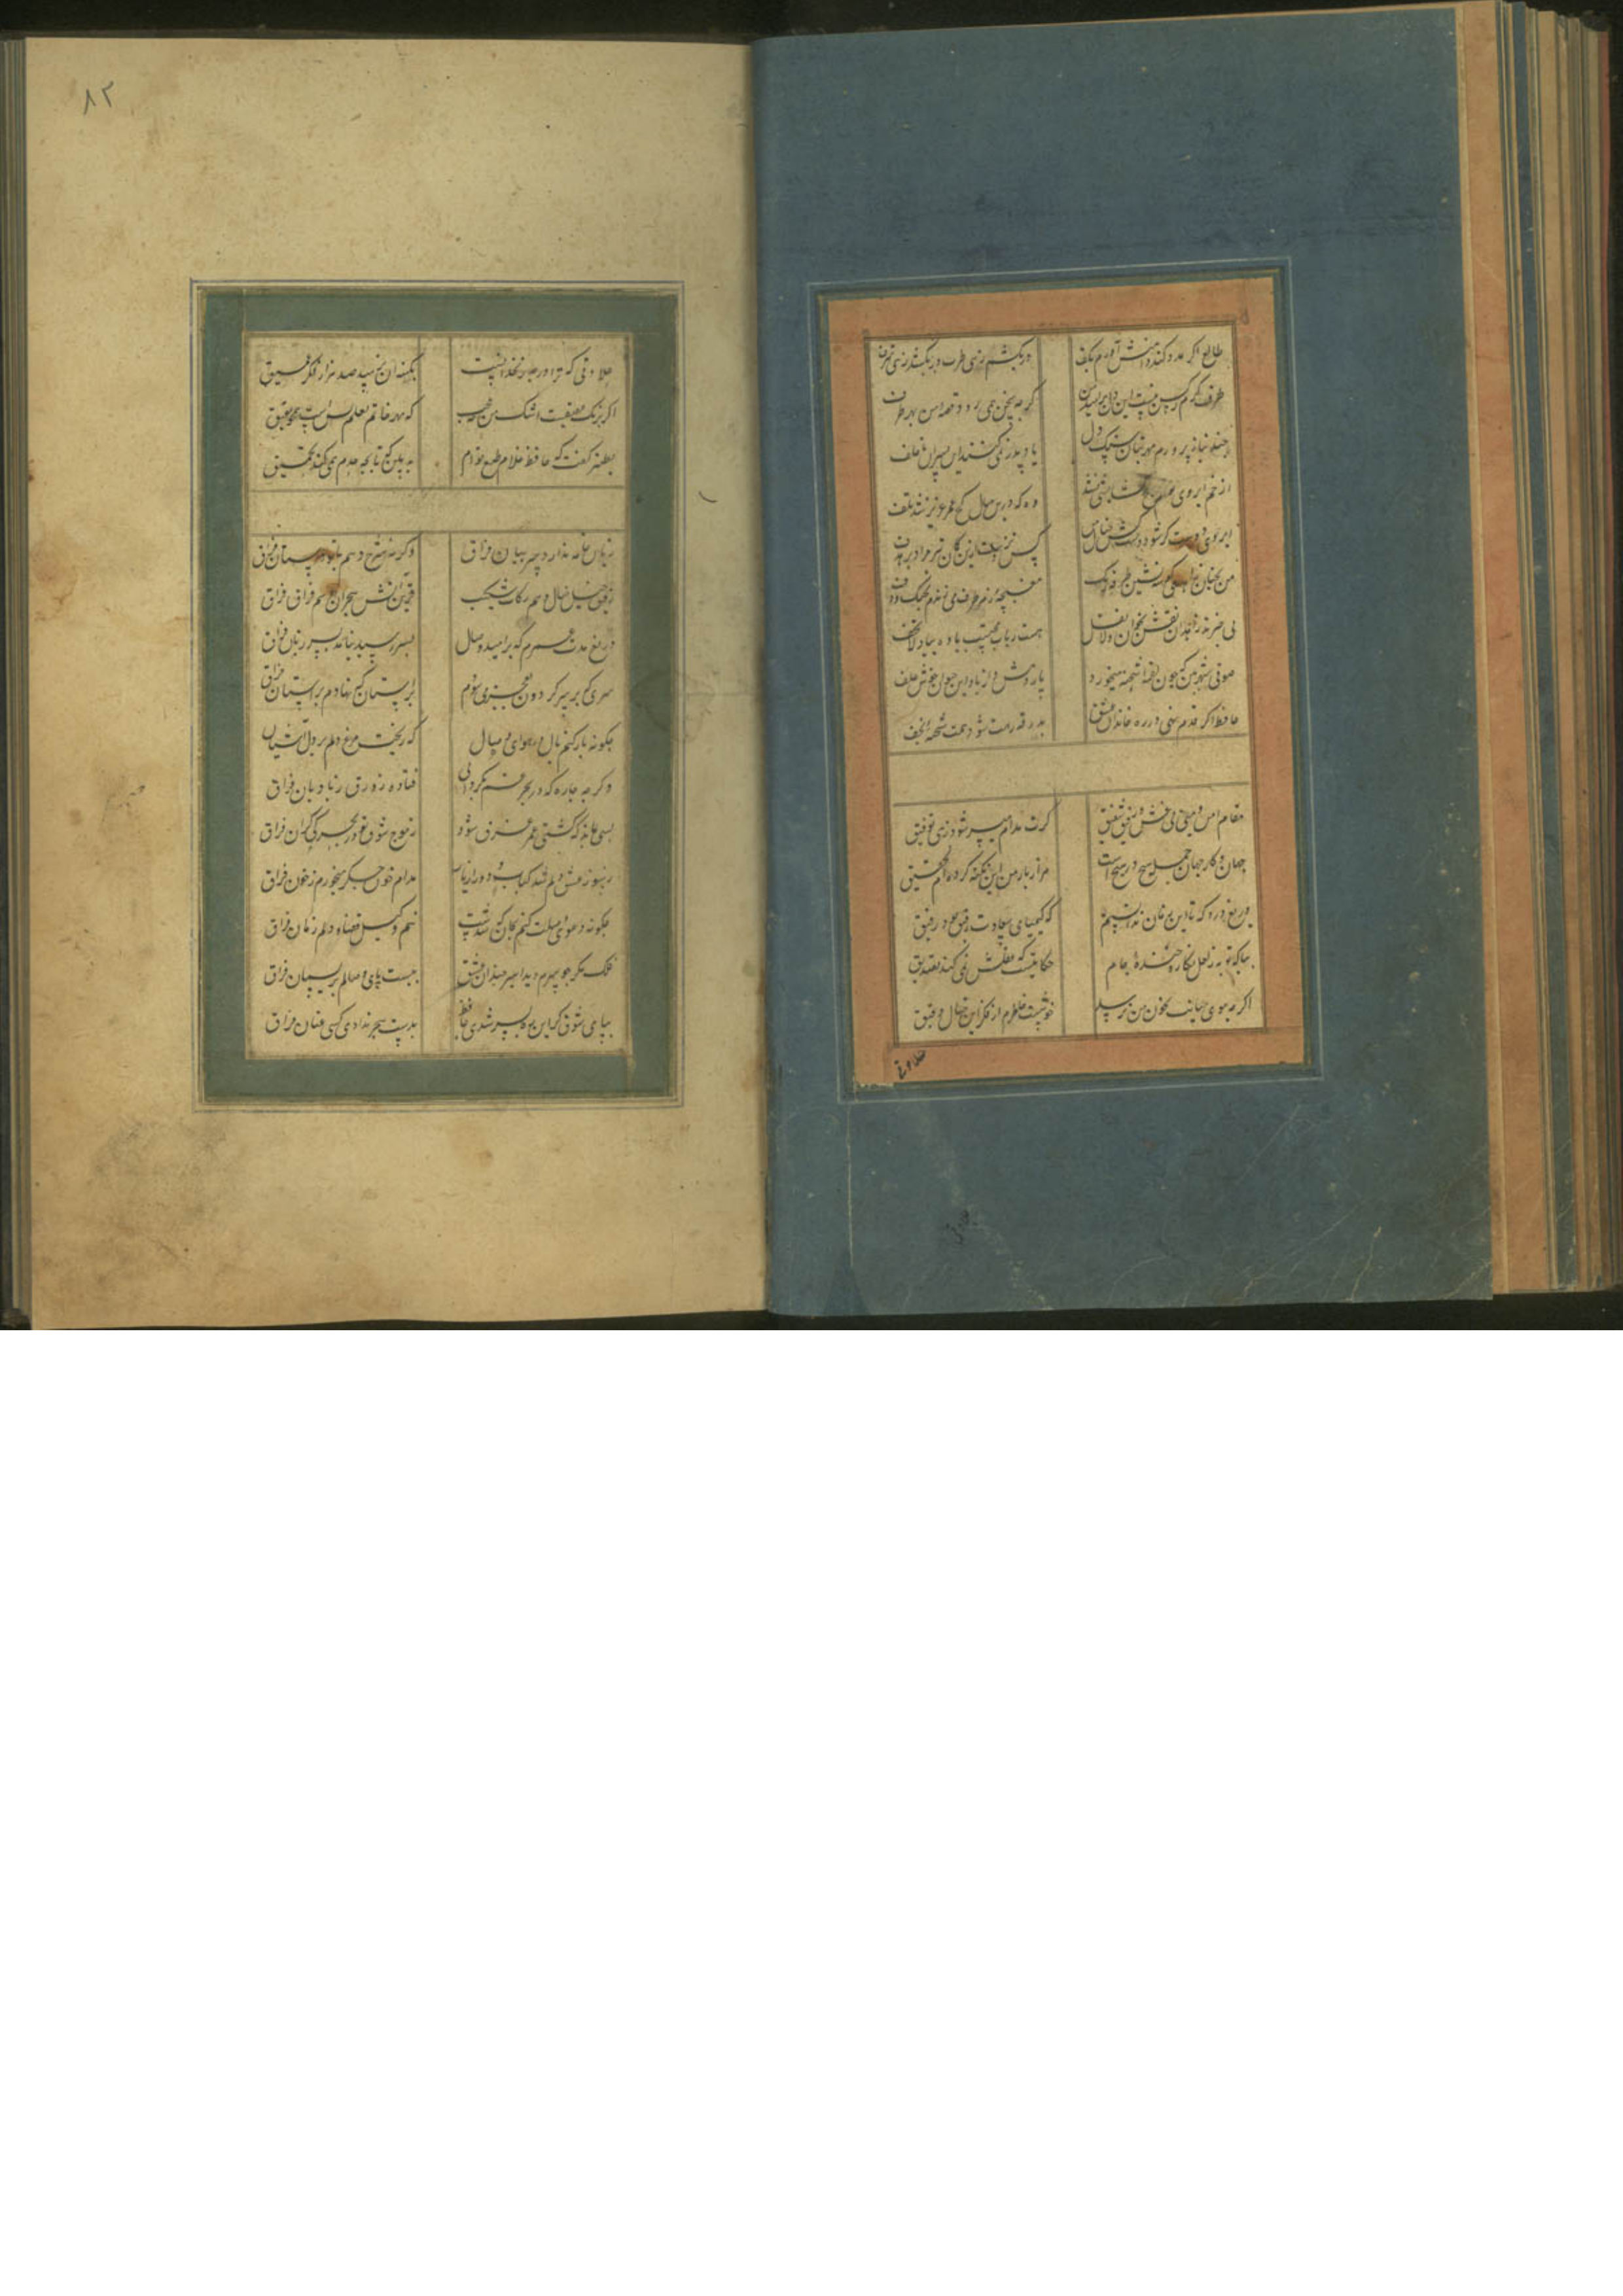 طالع اگر مدد کند دامنش آورم بکف
در بکشم زهی طرب ور بکشد زهی شرف
طرف کرم ز کس نبست این دل پر امید من
گرچه سخن همی برد قصه من بهر طرف
چند بناز پرورم مهر بتان سنگ دل
یاد پدر نمی کنند این پسران ناخلف
از خم ابروی توام هیچ گشایشی نشد
وه که درین خیال کج عمر عزیز شد تلف
ابروی دوست کی شود دست کش خیال من
کس نزدست ازین کمان تیر مراد بر هدف
من بخیال زاهدی گوشه نشین و طرفه آنک
مغبچه ز هر طرف می زندم بچنگ و دف
بی خبرند زاهدان نقش بخوان و لا تقل
مست ریاست محتسب باده بیار و لا تخف
صوفی شهر بین که چون لقمه شبهه میخورد
پاردمش دراز باد این حیوان خوش علف
حافظ اگر قدم نهی در ره خاندان عشق
بدرقه رهت شود همت شحنه نجف
مقام امن و می بی غش و رفیق شفیق
گرت مدام میسر شود زهی توفیق
جهان و کار جهان جمله هیچ در هیچ است
هزار بار من این نکته کرده ام تحقیق
دریغ و درد که تا این زمان ندانستم
که کیمیای سعادت رفیق بود رفیق
بیا که توبه ز لعل نگار و خنده جام
حکایتیست که عقلش نمی کند تصدیق
اگرچه موی میانت بچون من نرسد
خوشست خاطرم از فکر این خیال دقیق
حلاوتی
۸۲
حلاوتی که ترا در چه زنخدانست
بکنه آن نرسد صد هزار فکر عمیق
اگر برنگ عقیقست اشک من چه عجب
که مهر خاتم لعلم هست همچو عقیق
بطنز گفت که حافظ غلام طبع توام
به بین که تا بچه حدم همی کند تحمیق
زبان خامه ندارد سر بیان فراق
وگرنه شرح دهم با تو داستان فراق
رفیق خیل خیال و هم رکاب شکیب
قرین آتش هجران و هم قران فراق
دریغ مدت عمرم که بر امید وصال
بسر رسید و نیامد بسر زمان فراق
سری که بر سر گردون بفخر می سودم
براستان که نهادم بر آستان فراق
چگونه باز کنم بال در هوای وصال
که ریخت مرغ دلم پر در آشیان
کنون چه چاره که در بحر غم بگردابی
فتاده زورق ز بادبان فراق
بسی نماند که کشتی عمر غرق شود
ز موج شوق تو در بحر بی کران فراق
ز سوز عشق دلم شد کباب و دور از یار
مدام خون جگر میخورم ز خوان فراق
چگونه دعوی وصلت کنم بجان که شدست
تنم وکیل قضا و دلم زمان فراق
فلک مگر چو سرم دید اسیر چنبر عشق
ببست پای وصالم بریسمان فراق
بپای شوق گر این ره بسر شدی حافظ
بدست هجر ندادی کسی عنان فراق